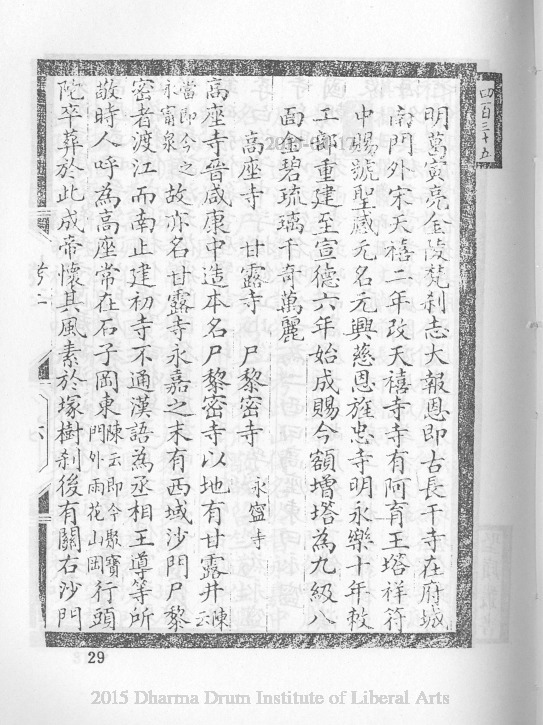 四百三十五
明葛寅亮金陵梵刹志大報恩即古長干寺在府城
南門外宋天禧二年改天禧寺寺有阿育王塔祥符
中賜號聖感元名元興慈恩旌忠寺明永樂十年敕
工部重建至宣德六年始成賜今額增塔為九級八
面金碧琉璃千奇萬麗
高座寺 甘露寺 尸黎密寺 永寧寺
高座寺晉咸康中造本名尸黎密寺以地有甘露井陳云
當即今之永甯泉故亦名甘露寺永嘉之末有西域沙門尸黎
密者渡江而南止建初寺不通漢語為丞相王導等所
敬時人呼為高座常在石子岡東陳云即今聚寶門外雨花山岡行頭
陀卒葬於此成帝懷其風素於塚樹刹後有關右沙門
考二
六
29
2015 Dharma Drum Institute of Liberal Arts